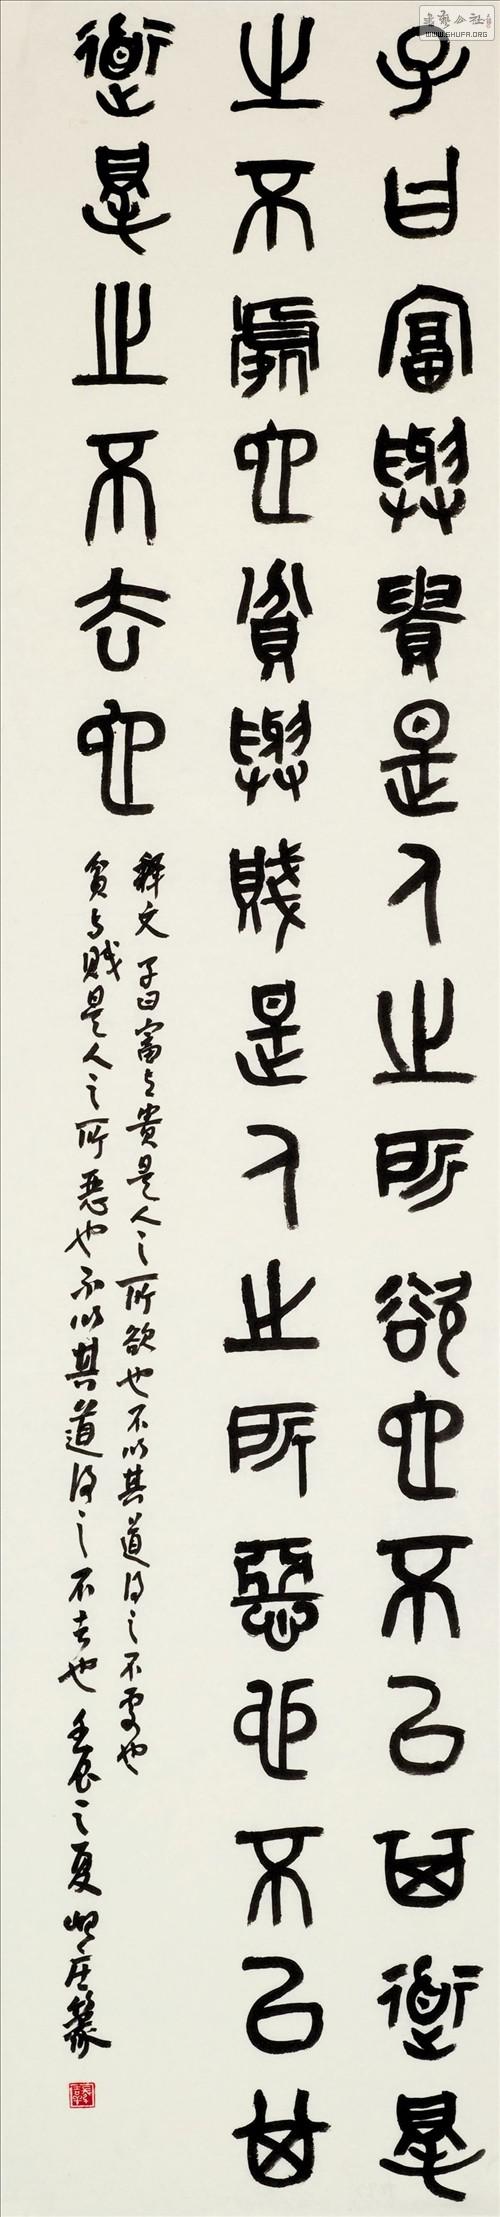 子曰富與貴是人之所欲也不以其道得
之不處也貧與賤是人之所惡也不以其
道得之不去也
釋文 子曰富与貴是人之所欲也不以其道得之不處也
貧与賤是人之所惡也不以其道得之不去也 壬辰之夏 篆
書藝公社
WWW.SHUFA.ORG